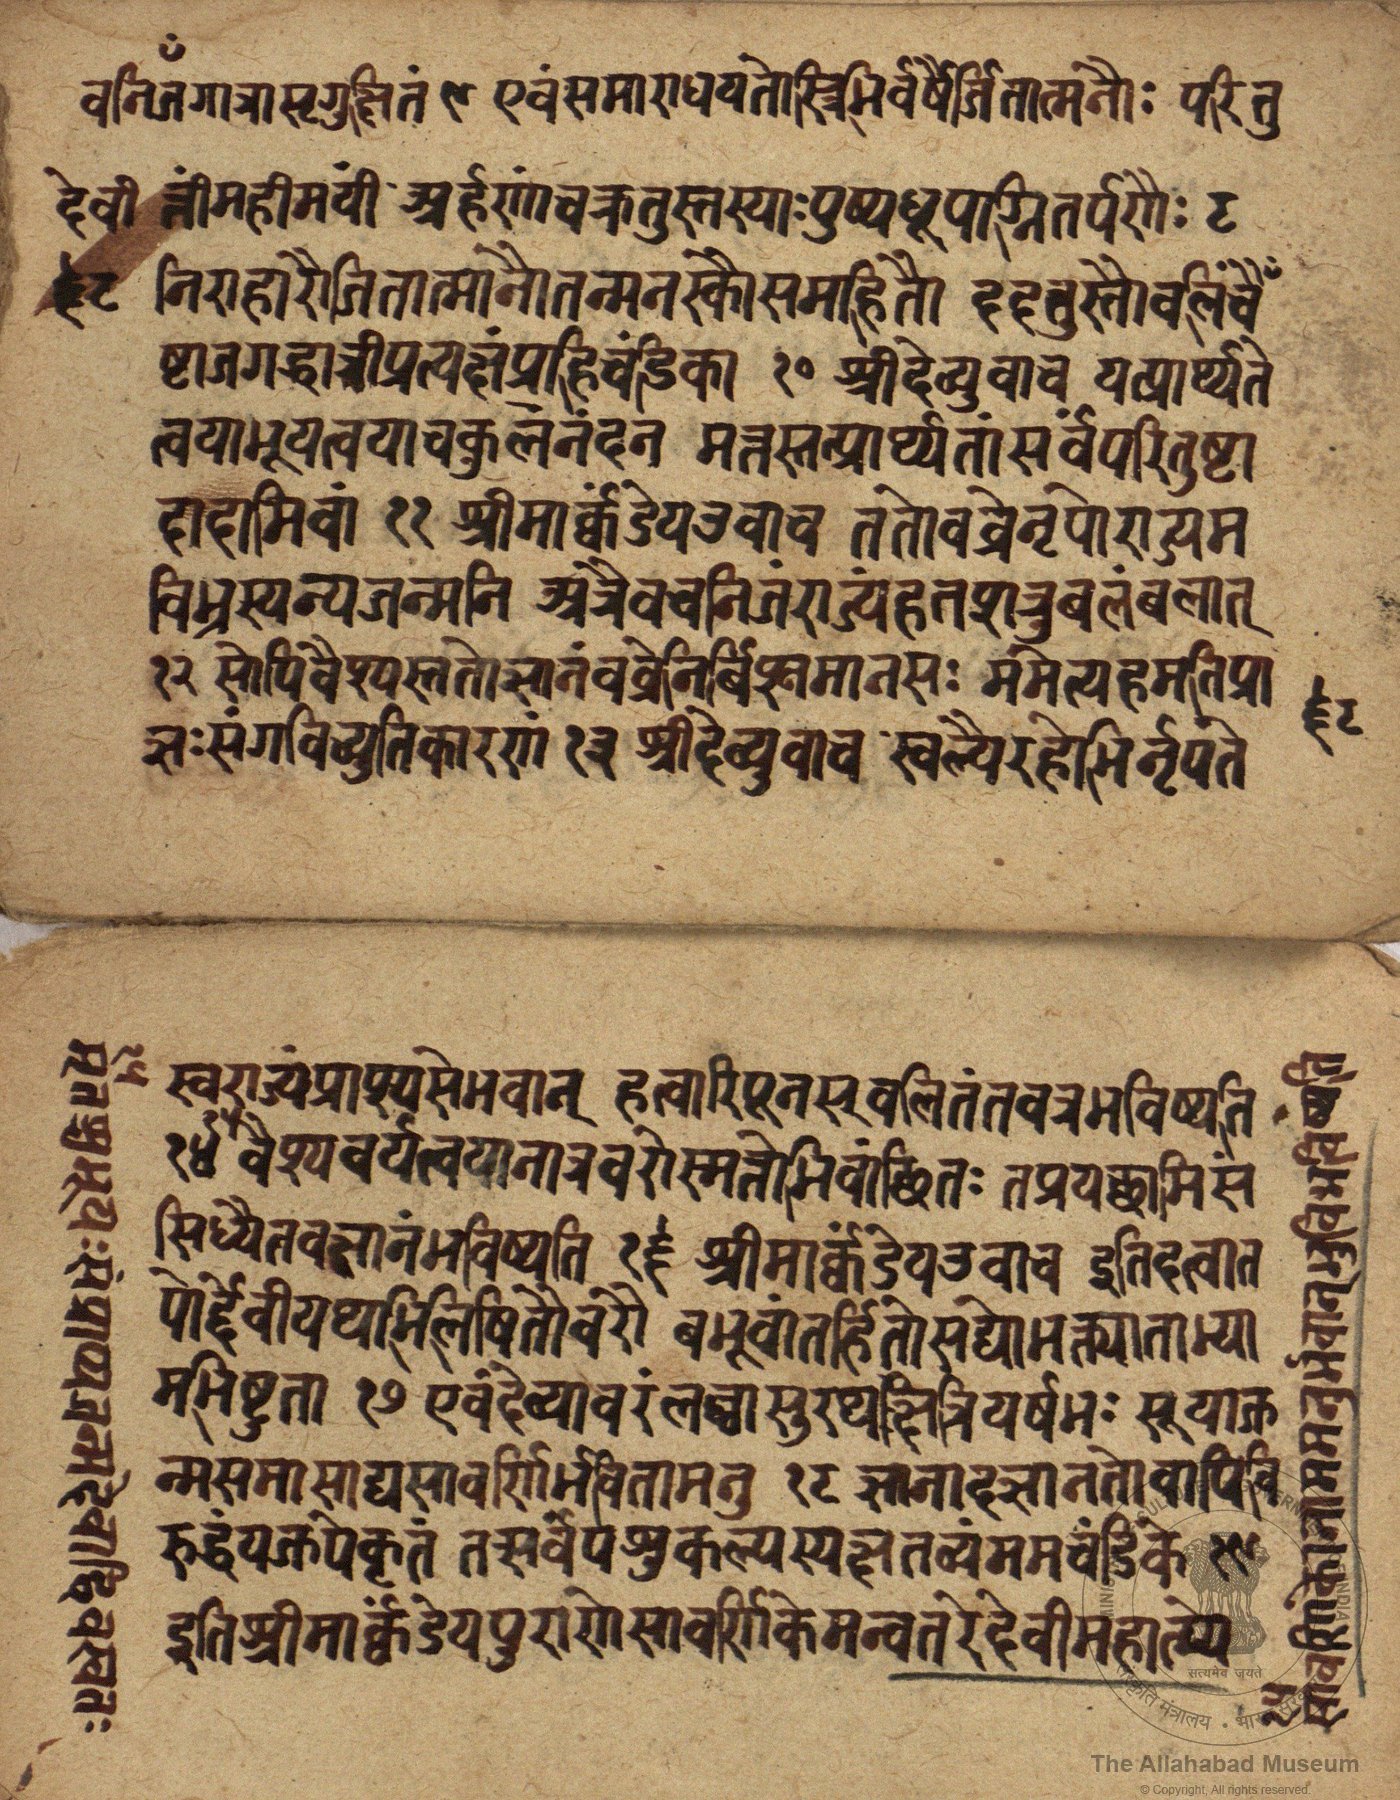 वनिजगात्रासृगुक्षितं ९ एवंसमाराधयतोस्त्रिभिर्वर्षैर्जितात्मनौः परितु
देवी त्तींमहीमयीं अर्हरणांचक्रतुस्तस्याःपुष्पधूपाग्नितर्पणौः ८
६८ निराहारौजितात्मानौतन्मनस्कौसमाहितौ ददतुस्तौवलिंचै
ष्टाजगद्धात्रीप्रत्यक्षंप्राहचंडिका १० श्रीदेव्युवाच यत्प्रार्थ्यते
त्वयाभूयत्वयाचकुलनंदन मत्तस्तत्प्रार्थ्यतांसर्वंपरितुष्टा
दादामिवां ११ श्रीमार्क्कंडेयउवाच ततोवव्रेनृपोराज्यम
विभ्रस्यन्यजन्मनि अत्रैवचनिजंराज्यंहतशत्रुबलंबलात्
१२ सोपिवैश्यस्ततोज्ञानंवव्रेनिर्विण्णमानसः ममेत्यहमतिप्रा
ज्ञःसंगविच्युतिकारणं १३ श्रीदेव्युवाच स्वल्पैरहोभिर्नृपते
६८
स्वराज्यंप्राप्स्यसेभवान् हत्वारिपूनस्वलितंतवत्रभविष्यति
१४ वैश्यवर्यत्वयानात्रवरोस्मत्तोभिवांछितः तप्रयच्छामिसं
सिध्यैतवज्ञानंभविष्यति १६ श्रीमार्क्कंडेयउवाच इतिदत्वात
योर्द्देवीयथाभिलिषितौवरौ बभूवांतर्हितोसद्योभक्त्याताभ्या
मभिष्टुता १७ एवंदेव्यावरंलब्धासुरथक्षित्रियर्षभः सूयाज
न्मसमासाद्यसावर्णिर्भवितामनु १८ ज्ञानादज्ञानतोवापिवि
रुद्धंयक्तपेकृतं तत्सर्वंपशुकल्पस्यक्षतव्यंममचंडिके १९
इतिश्रीमार्क्कंडेयपुराणेसावर्णिकेमन्वतरेदेवीमहात्म्ये
मृतश्चभूयःसंप्राप्यजन्मदेवाद्विवस्वतः १५
सावर्णिकोनाममनुर्भवान्भुविभविष्यति
सत्यमेव जयते
The Allahabad Museum
© Copyright, All rights reserved.